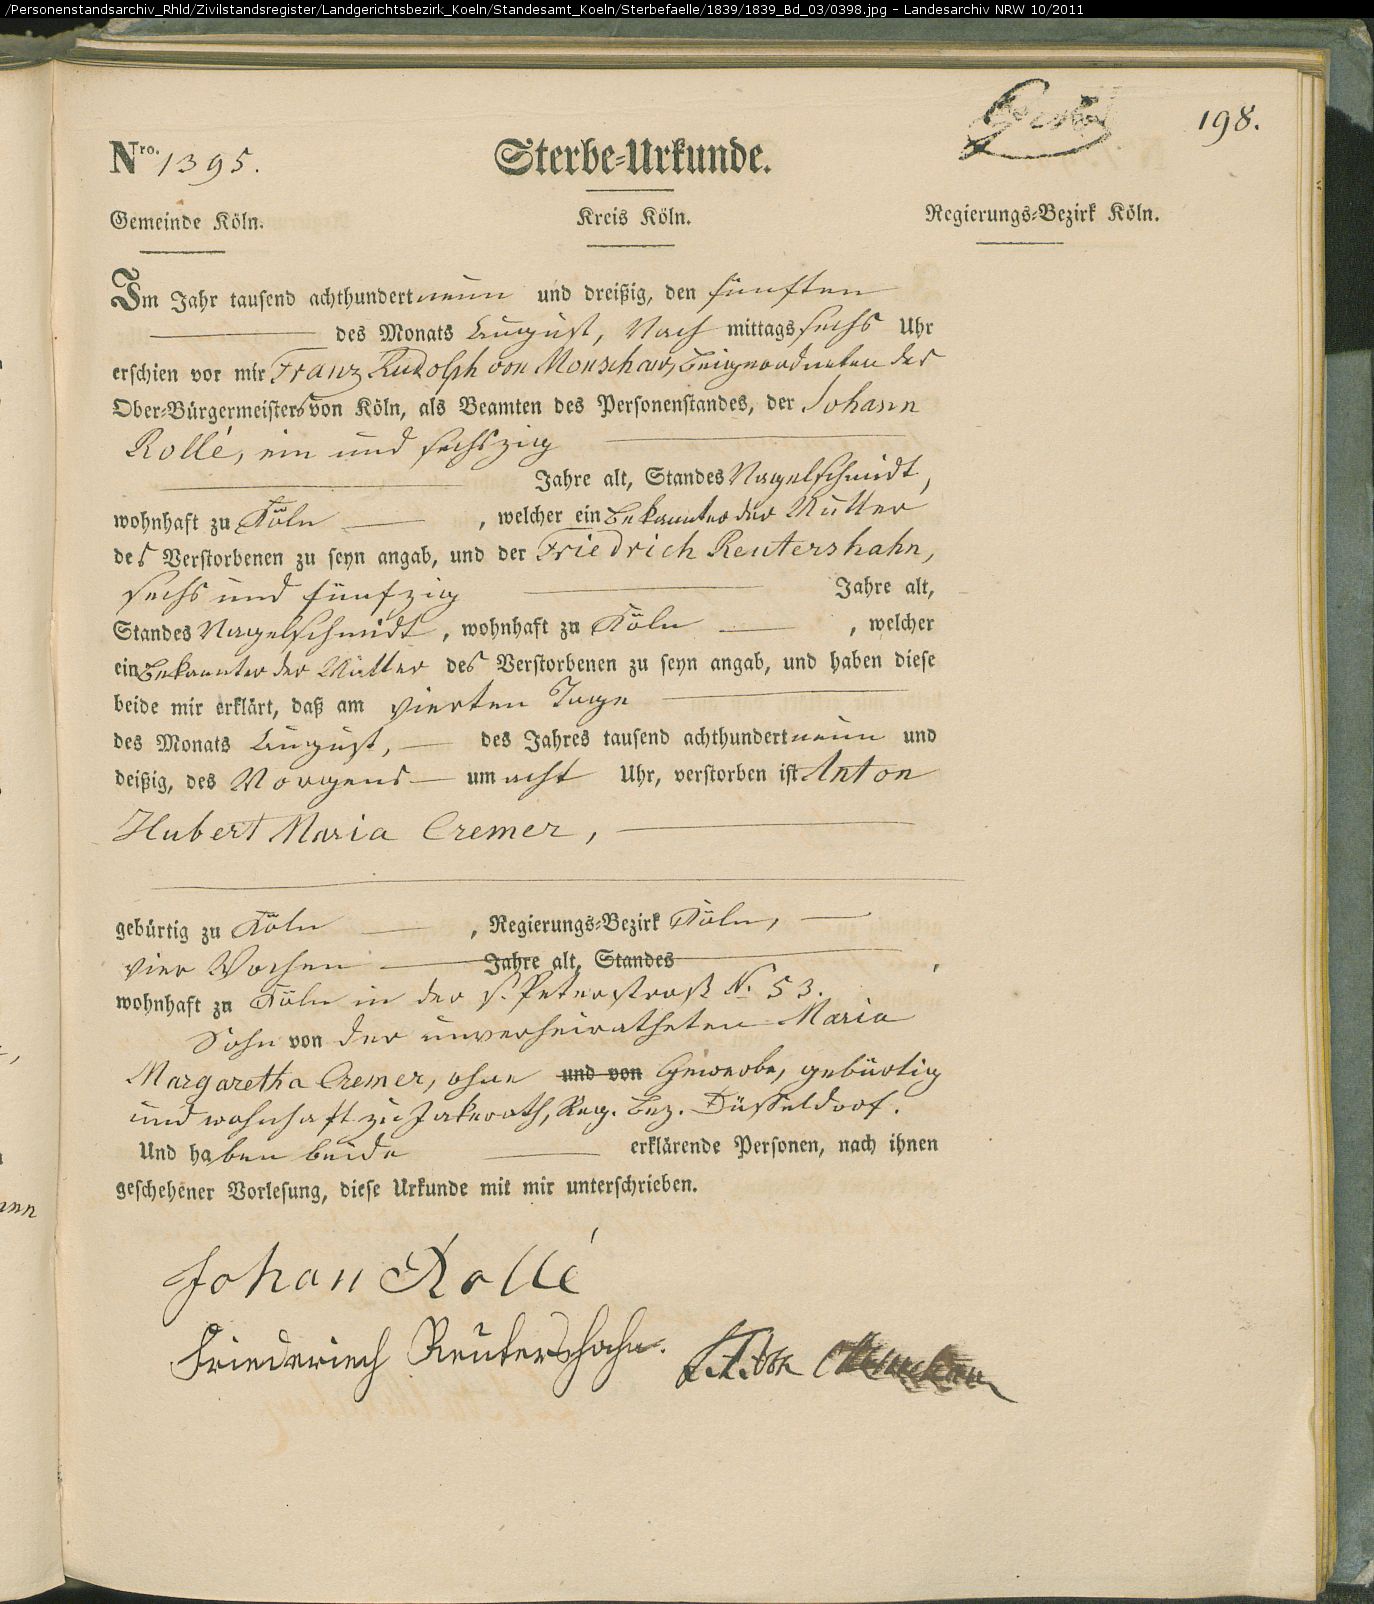 /Personenstandsarchiv_Rhld/Zivilstandsregister/Landgerichtsbezirk_Koeln/Standesamt_Koeln/Sterbefaelle/1839/1839_Bd_03/0398.jpg - Landesarchiv NRW 10/2011
198.
Nro. 1395.
Sterbe-Urkunde.
Gemeinde Köln.
Kreis Köln.
Regierungs-Bezirk Köln.
Im Jahr tausend achthundert neun und dreißig, den fünften
des Monats August, Nach mittags sechs Uhr
erschien vor mir Franz Rudolph von Monschaw, Beigeordneten des
Ober-Bürgermeisters von Köln, als Beamten des Personenstandes, der Johann
Rollé, ein und sechszig
Jahre alt, Standes Nagelschmidt,
wohnhaft zu Köln, welcher ein Bekannter der Mutter
des Verstorbenen zu seyn angab, und der Friedrich Reutershahn,
sechs und fünfzig Jahre alt,
Standes Nagelschmidt, wohnhaft zu Köln, welcher
ein Bekannter der Mutter des Verstorbenen zu seyn angab, und haben diese
beide mir erklärt, daß am vierten Tage
des Monats August, des Jahres tausend achthundert neun und
deißig, des Morgens um acht Uhr, verstorben ist Anton
Hubert Maria Cremer,
gebürtig zu Köln, Regierungs-Bezirk Köln,
vier Wochen Jahre alt, Standes
wohnhaft zu Köln in der St. Peterstraß No. 53.
Sohn von der unverheiratheten Maria
Margaretha Cremer, ohne und von Gewerbe, gebürtig
und wohnhaft zu Jakerath, Reg. Bez. Düsseldorf.
Und haben beide erklärende Personen, nach ihnen
geschehener Vorlesung, diese Urkunde mit mir unterschrieben.
Johan Rollé
Friederich Reutershahn.